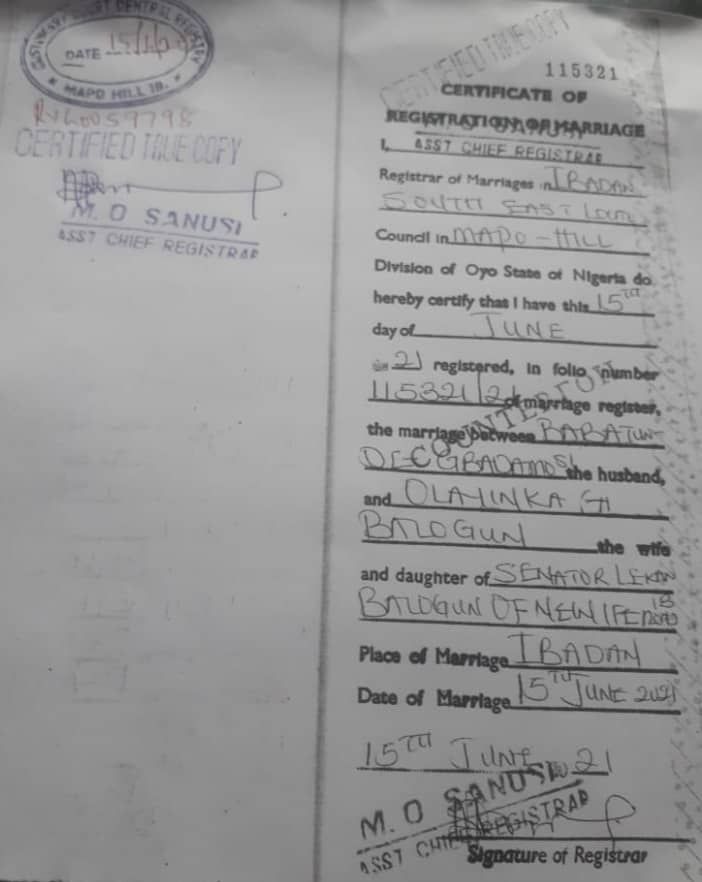 CUSTOMARY COURT CENTRAL REGISTRY
DATE 15/6/21
★ MAPO HILL IB. ★
CERTIFIED TRUE COPY
M. O SANUSI
ASST CHIEF REGISTRAR
CERTIFIED TRUE COPY
115321
CERTIFICATE OF
REGISTRATION OF MARRIAGE
I, ASST CHIEF REGISTRAR
Registrar of Marriages in IBADAN
SOUTH EAST LOCAL
Council in MAPO-HILL
Division of Oyo State of Nigeria do
hereby certify that I have this 15TH
day of JUNE
21 registered, in folio number
115321/21 of marriage register,
the marriage between BABATUN-
DE C GBADAMOSI the husband,
and OLAYINKA
BALOGUN the wife
and daughter of SENATOR LEKAN
BALOGUN OF NEW IFE ROAD IB
Place of Marriage IBADAN
Date of Marriage 15TH JUNE 2021
15TH JUNE 21
M. O SANUSI
ASST CHIEF REGISTRAR
Signature of Registrar